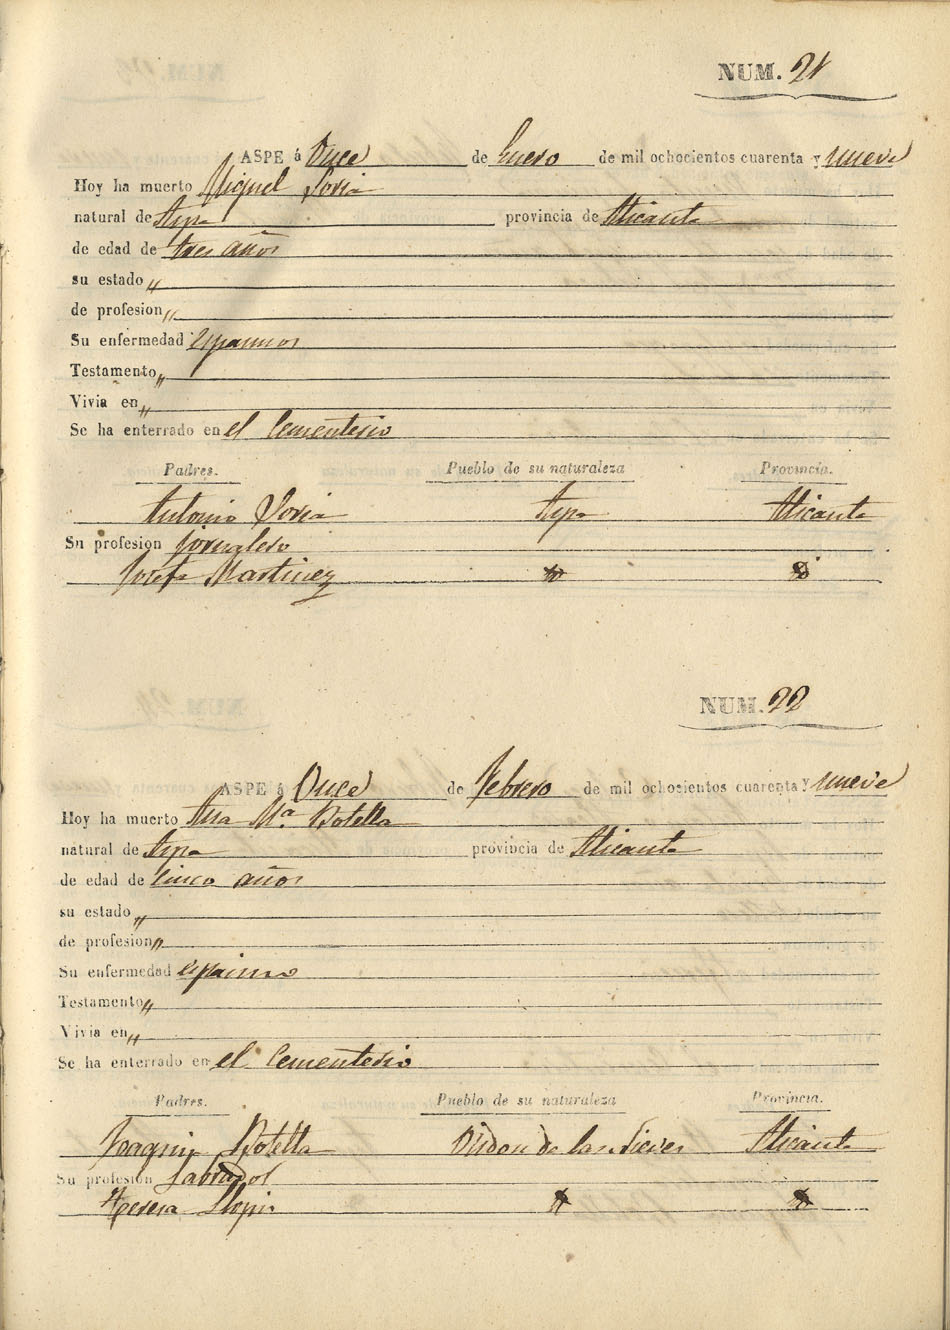 NUM. 21
ASPE á Once de Enero de mil ochocientos cuarenta y nueve
Hoy ha muerto Miguel Soria
natural de Aspe provincia de Alicante
de edad de tres años
su estado „
de profesion „
Su enfermedad espasmos
Testamento „
Vivia en „
Se ha enterrado en el Cementerio
Padres. Pueblo de su naturaleza Provincia.
Antonio Soria Aspe Alicante
Su profesion jornalero
Josefa Martinez
NUM. 22
ASPE á Once de Febrero de mil ochocientos cuarenta y nueve
Hoy ha muerto Ana Mª Botella
natural de Aspe provincia de Alicante
de edad de Cinco años
su estado „
de profesion „
Su enfermedad espasmo
Testamento „
Vivia en „
Se ha enterrado en el Cementerio
Padres. Pueblo de su naturaleza Provincia.
Joaquin Botella Ondon de las Nieves Alicante
Su profesion Labrador
Teresa Llopis